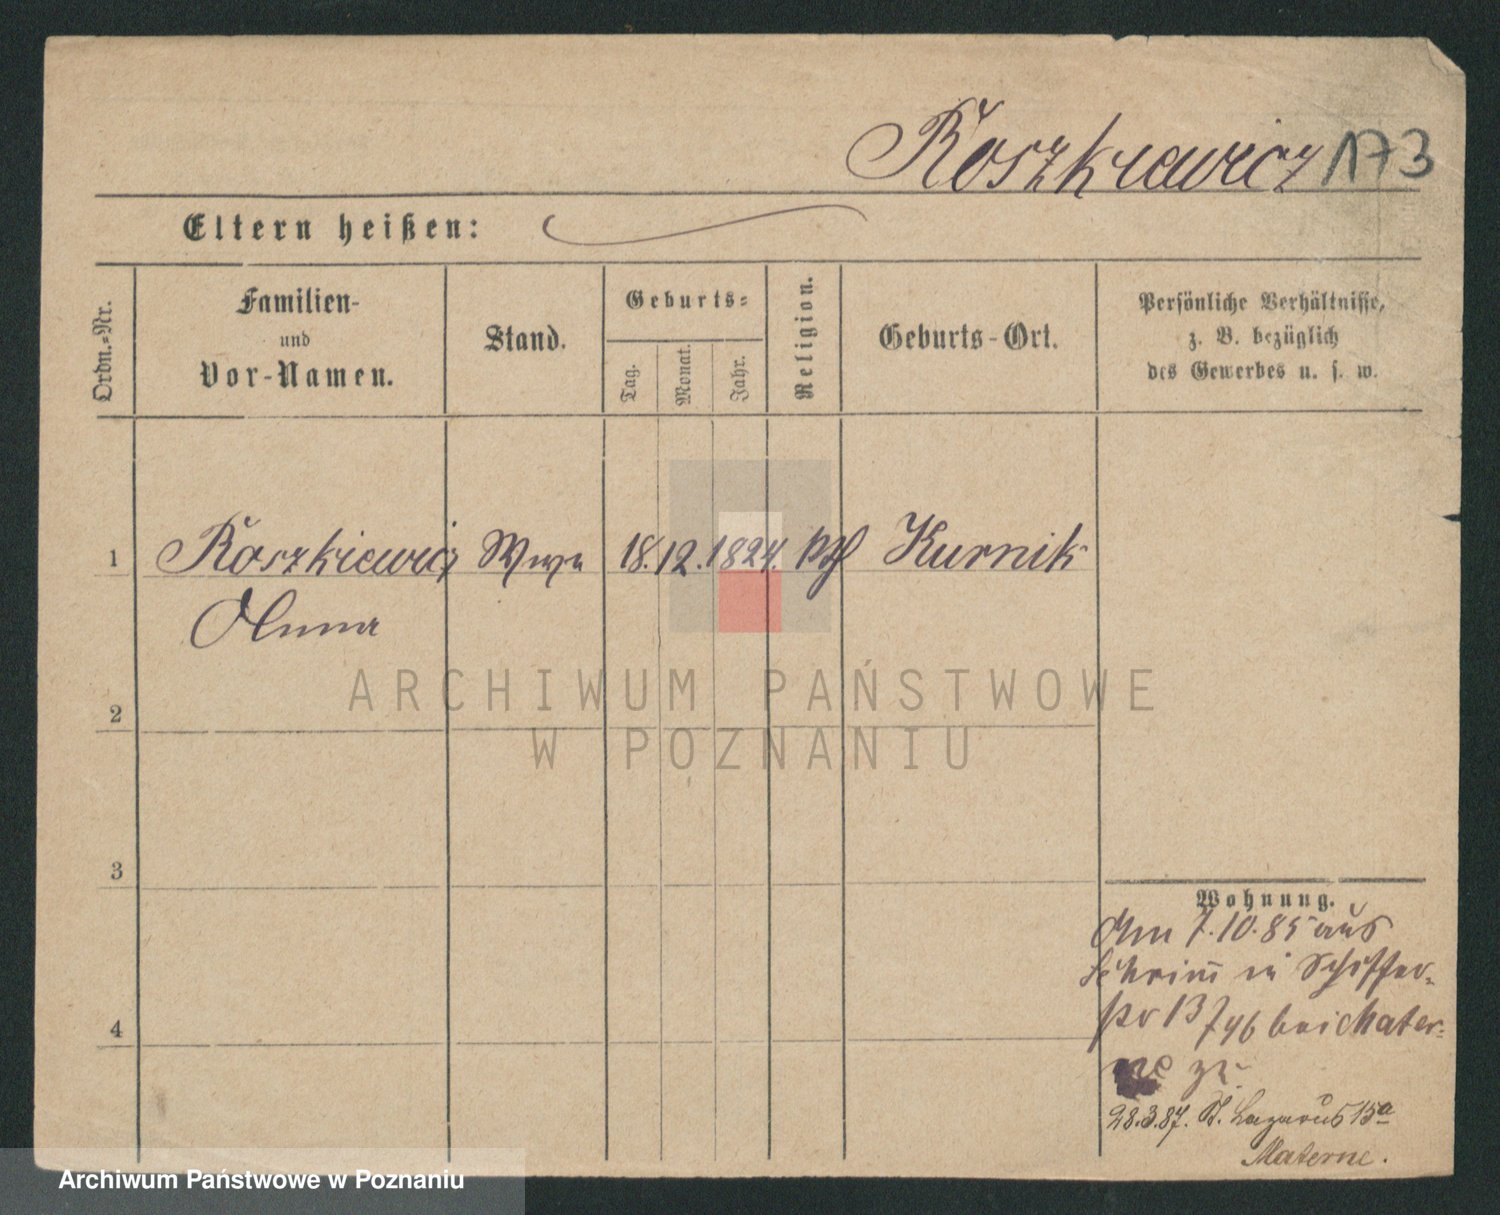 Roszkiewicz 173
Eltern heißen:
Ordn.-Nr.
Familien-
und
Vor-Namen.
Stand.
Geburts-
Tag.
Monat.
Jahr.
Religion.
Geburts-Ort.
Persönliche Verhältnisse,
z. B. bezüglich
des Gewerbes u. s. w.
1 Roszkiewicz Wwe 18. 12. 1824. kth Kurnik
Anna
2
3
4
Wohnung.
Am 7.10.85 aus
Schrimm in Schiffer-
str 13 bei Mater-
ne zu.
28.3.87. St. Lazarus 15a
Materne.
ARCHIWUM PAŃSTWOWE
W POZNANIU
Archiwum Państwowe w Poznaniu